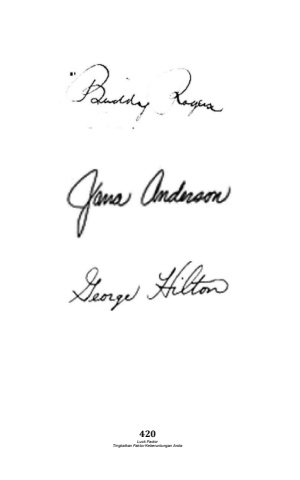 Buddy Rogers
Jana Anderson
George Hilton
420
Luck Factor
Tingkatkan Faktor Keberuntungan Anda